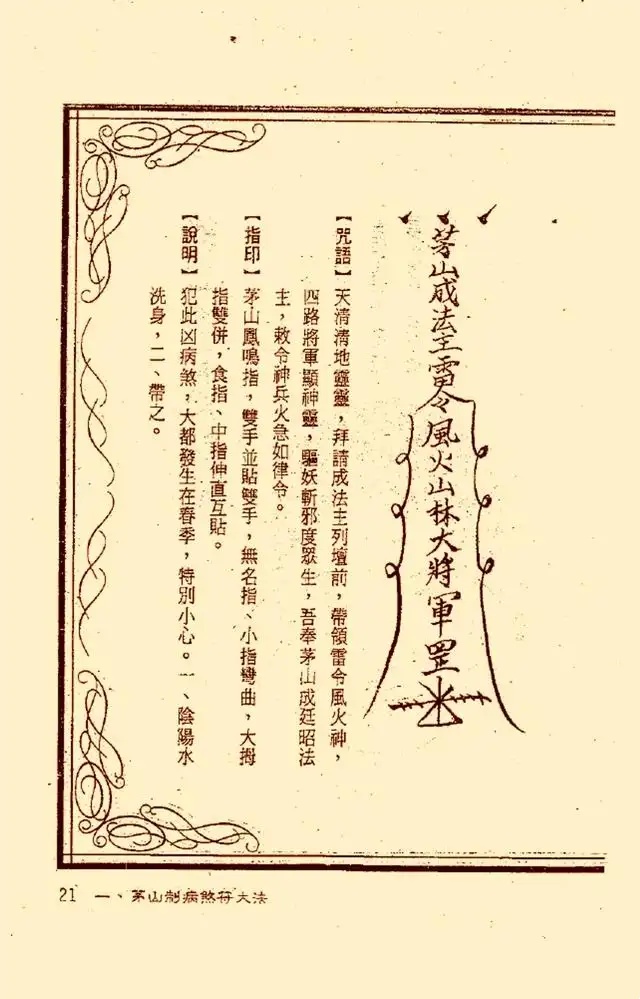 茅山成法主雷令風火山林大將軍罡
【咒語】天清清地靈靈,拜請成法主列壇前,帶領雷令風火神,
四路將軍顯神靈,驅妖斬邪度眾生,吾奉茅山成廷昭法
主,敕令神兵火急如律令。
【指印】茅山鳳鳴指,雙手並貼雙手,無名指、小指彎曲,大拇
指雙併,食指、中指伸直互貼。
【說明】犯此凶病煞,大都發生在春季,特別小心。一、陰陽水
洗身,二、帶之。
21 一、茅山制病煞符大法